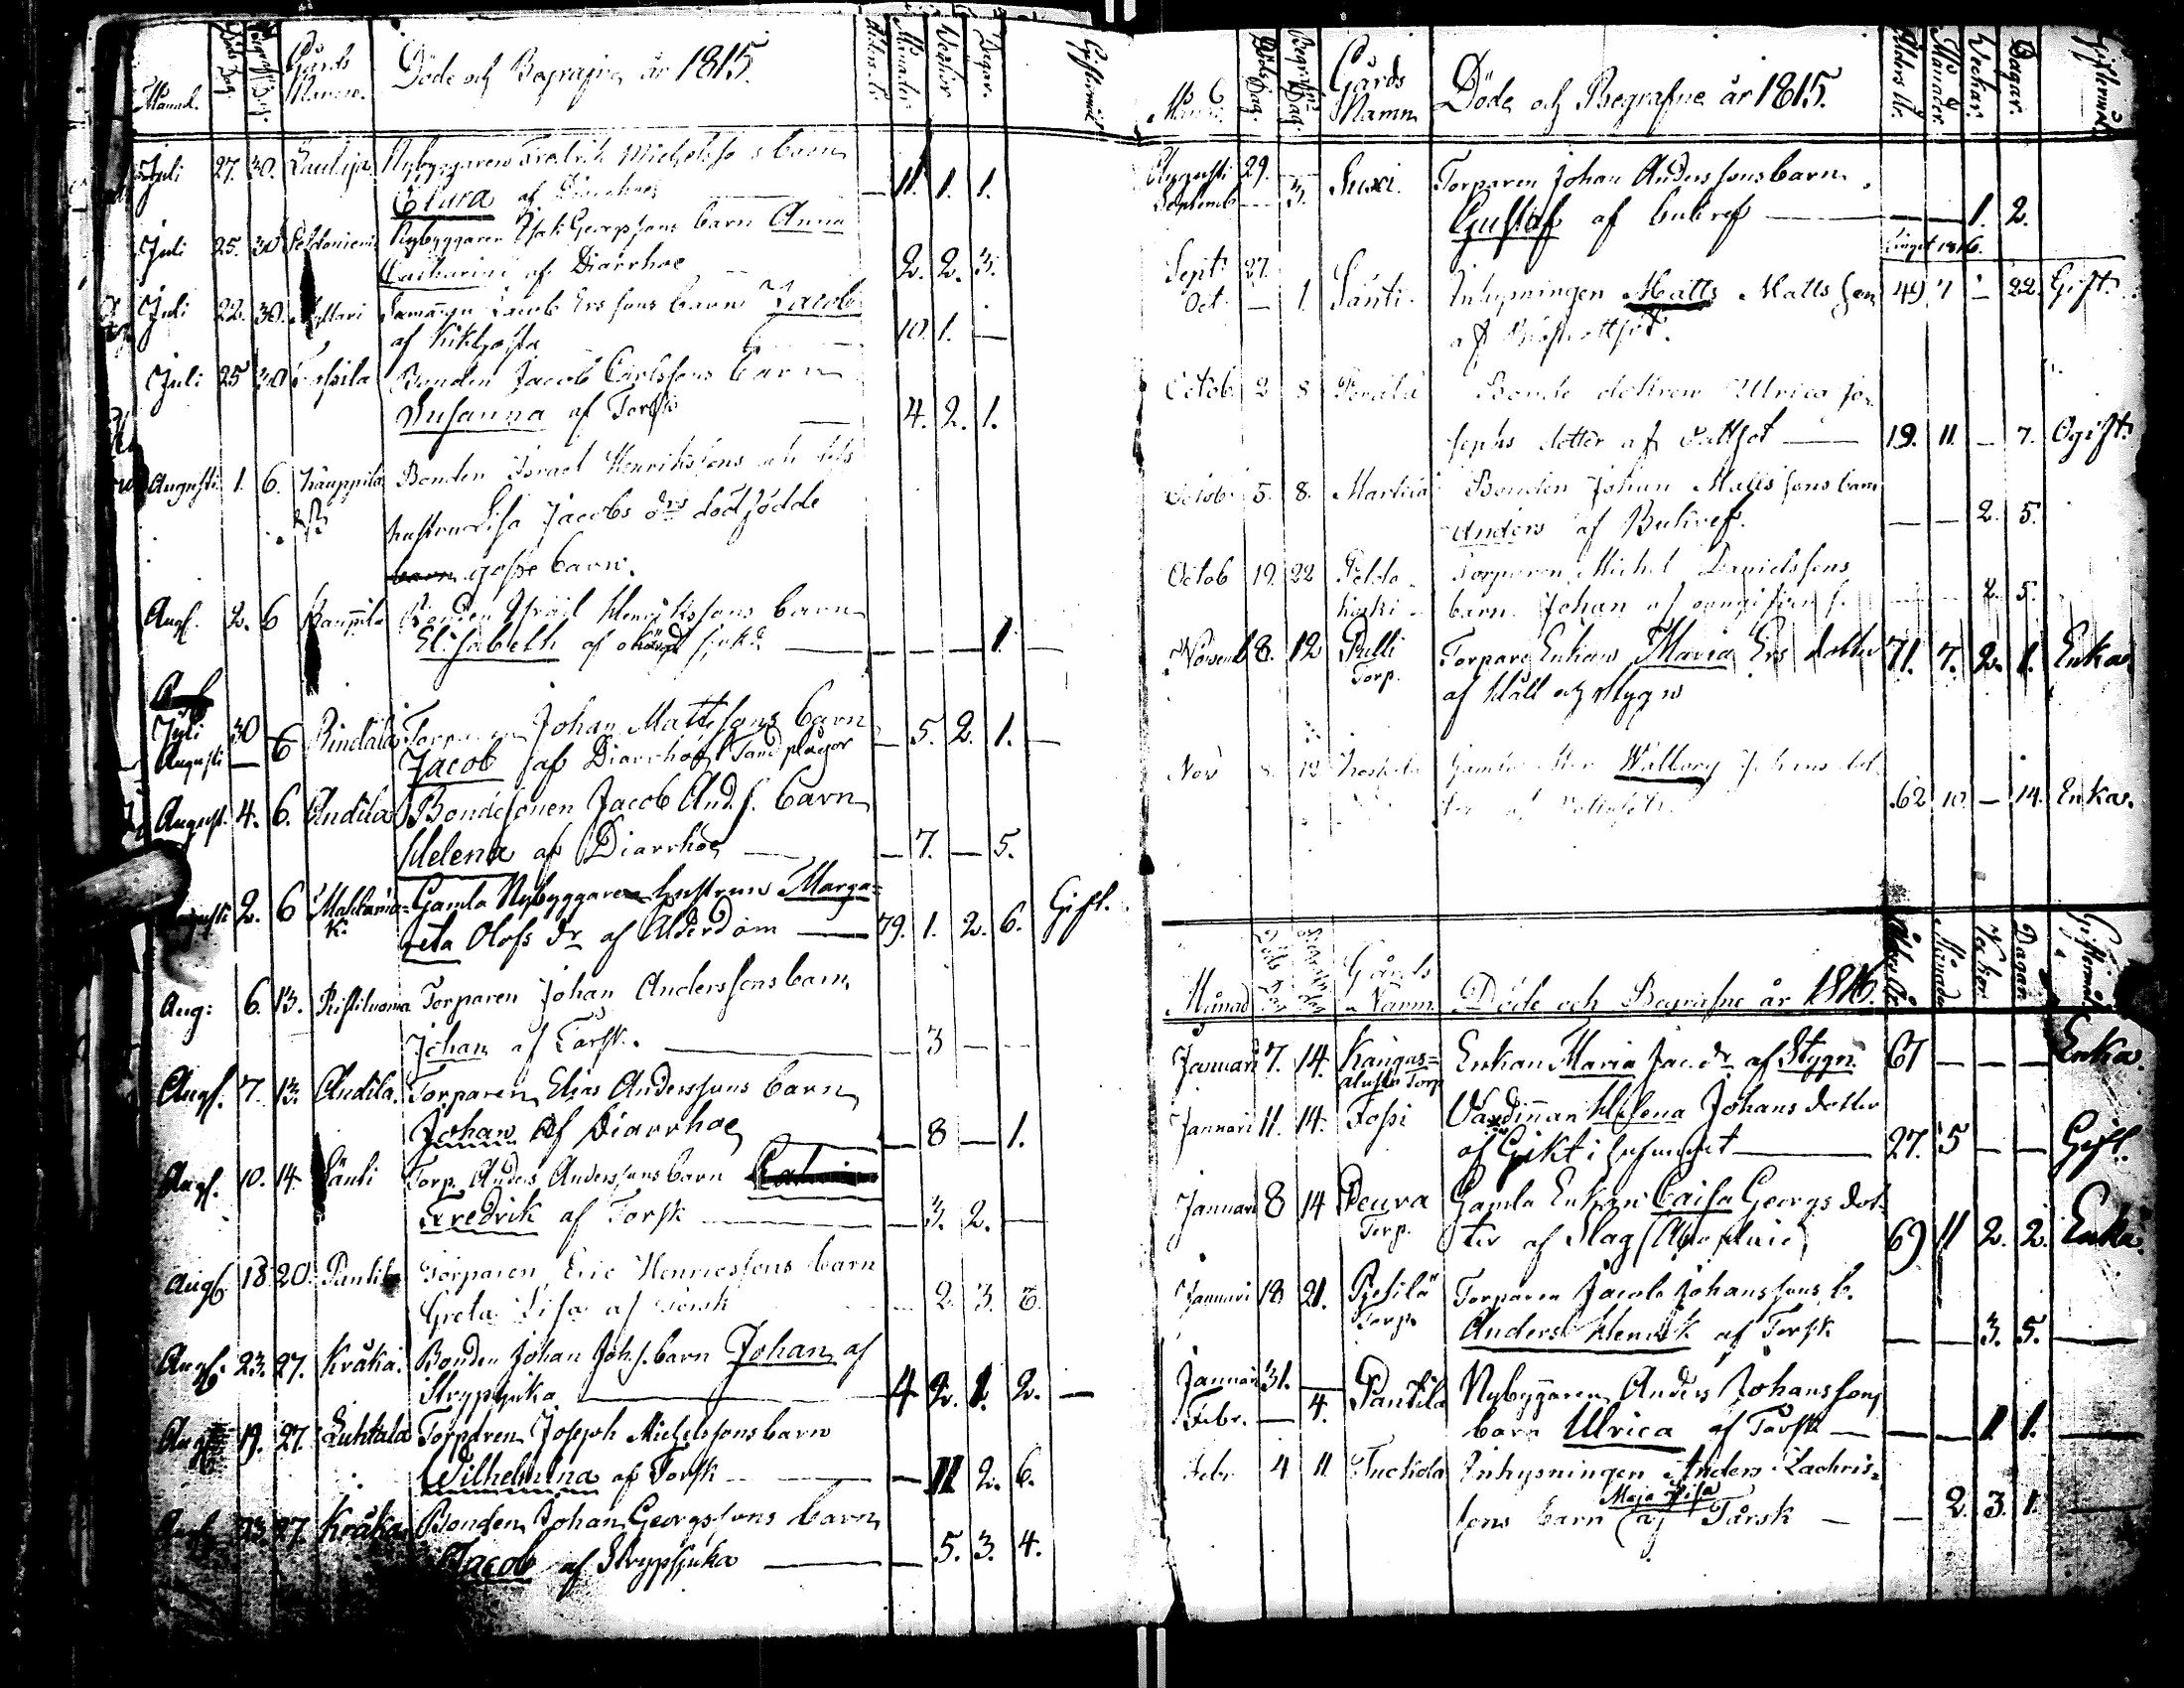 Månad. Döds Dag. Begrafn. Dag. Gårds Namn. Döde och Begrafne år 1815. Ålders År. Månader. Weckor. Dagar. Giftermål
Juli 27. 30. Nybyggaren Fredrik Michelss s barn
Clara af Diarrhoe — 11. 1. 1.
Juli 25. 30 Nybyggaren Isak Georgssons barn Anna
Catharina af Diarrhoe 2. 2. 3.
Juli 22. 30. Jacob Erssons barn Jacob
af Kikhosta 10. 1. —
Juli 25 30 Bonden Jacob Carlssons barn
Susanna af Torsk — 4. 2. 1.
Augusti 1. 6. Kauppila Bonden Israel Henrikssons och dess
hustru Lisa Jacobs drs dödfödde
barn gosse barn.
Aug. 2. 6 Kauppila Bonden Israel Henrikssons barn
Elisabeth af okänd sjukd. — — — 1. —
Juli 30
Augusti — 6 Rindala Torparen Johan Mattssons barn
Jacob af Diarrhoe Tandplågor — 5. 2. 1. —
August. 4. 6. Andila Bondesonen Jacob And. s. barn
Helena af Diarrhoe — — 7. — 5.
Augusti 2. 6 Gamla Nybyggaren hustrun Marga=
reta Olofs dr af Ålderdom — 79. 1. 2. 6. Gift.
Aug: 6. 13. Ristiluoma Torparen Johan Anderssons barn
Johan af Torsk. — — 3 — —
Aug. 7. 13. Andila. Torparen Elias Anderssons barn
Johan af Diarrhoe — 8 — 1.
Aug. 10. 14. Sänti Torp. Anders Anderssons barn
Fredrik af Torsk — — 3. 2. —
Aug. 18. 20. Torparen Eric Henricssons barn
Greta Lisa af Torsk — 2. 3. 6.
Aug. 23. 27. Kråka. Bonden Johan Joh. s. barn Johan af
Strypsjuka — 4 2. 1. 2. —
Aug. 19. 27. Luhtala Torparen Joseph Michelssons barn
Wilhelmina af Torsk — — 11 2. 6.
Aug. 23. 27. Kråka Bonden Johan Georgssons barn
Jacob af Strypsjuka — — 5. 3. 4.
Månad Döds Dag. Begrafn. Dag. Gårds Namn Döde och Begrafne år 1815. Ålders År. Månader. Weckor. Dagar. Giftermål
Augusti 29. —
Septemb — 3. Luxi. Torparen Johan Anderssons barn
Gustaf af bukref — — — 1. 2.
Sept. 27.
Oct. — 1. Sänti. Inhysningen Matts Mattsson 49 7 — 22. Gift.
Octob. 2 8 Perälä Bonde dottren Ulrica Jo-
sephs dotter af Vattsot — 19. 11. — 7. Ogift.
Octob. 5. 8. Marttila Bonden Johan Mattssons barn
Anders af Bukref. — — 2. 5.
Octob 19. 22 Peldo- Torparen Michel Danielssons
koski barn Johan af 2. 5.
Novemb 8. 12 Pulli Torpare Enkan Maria Ers dotter 71. 7. 2. 1. Enka
Torp. af Håll och Stygn
Nov 8. 12 Wallborg Johans dot-
ter af 62 10 — 14. Enka.
Månad Döds Dag Gårds Namn. Döde och Begrafne år 1816. Ålders År. Månader Veckor Dagar Giftermål
Januari 7. 14. Kangas= Enkan Maria Jac. dr. af Stygn. 67 — — — Enka
Januari 11. 14. Fossi Värdinnan Helena Johans dotter
af Gikt i hufvudet — 27. 5 — — Gift.
Januari 8 14 Peura Gamla Enkan Caisa Georgs dot-
Torp. ter af Slag (Apoplexie) 69 11 2. 2. Enka.
Januari 18 21. Torparen Jacob Johanssons b.
Torp. Anders Henrik af Torsk — — 3. 5. —
Januari 31. —
Febr. — 4. Panttila Nybyggaren Anders Johanssons
barn Ulrica af Torsk — — — 1. 1. —
Febr. 4 11 Inhysningen Anders Zachris=
Maja Lisa
sons barn af Torsk — — 2. 3. 1. —